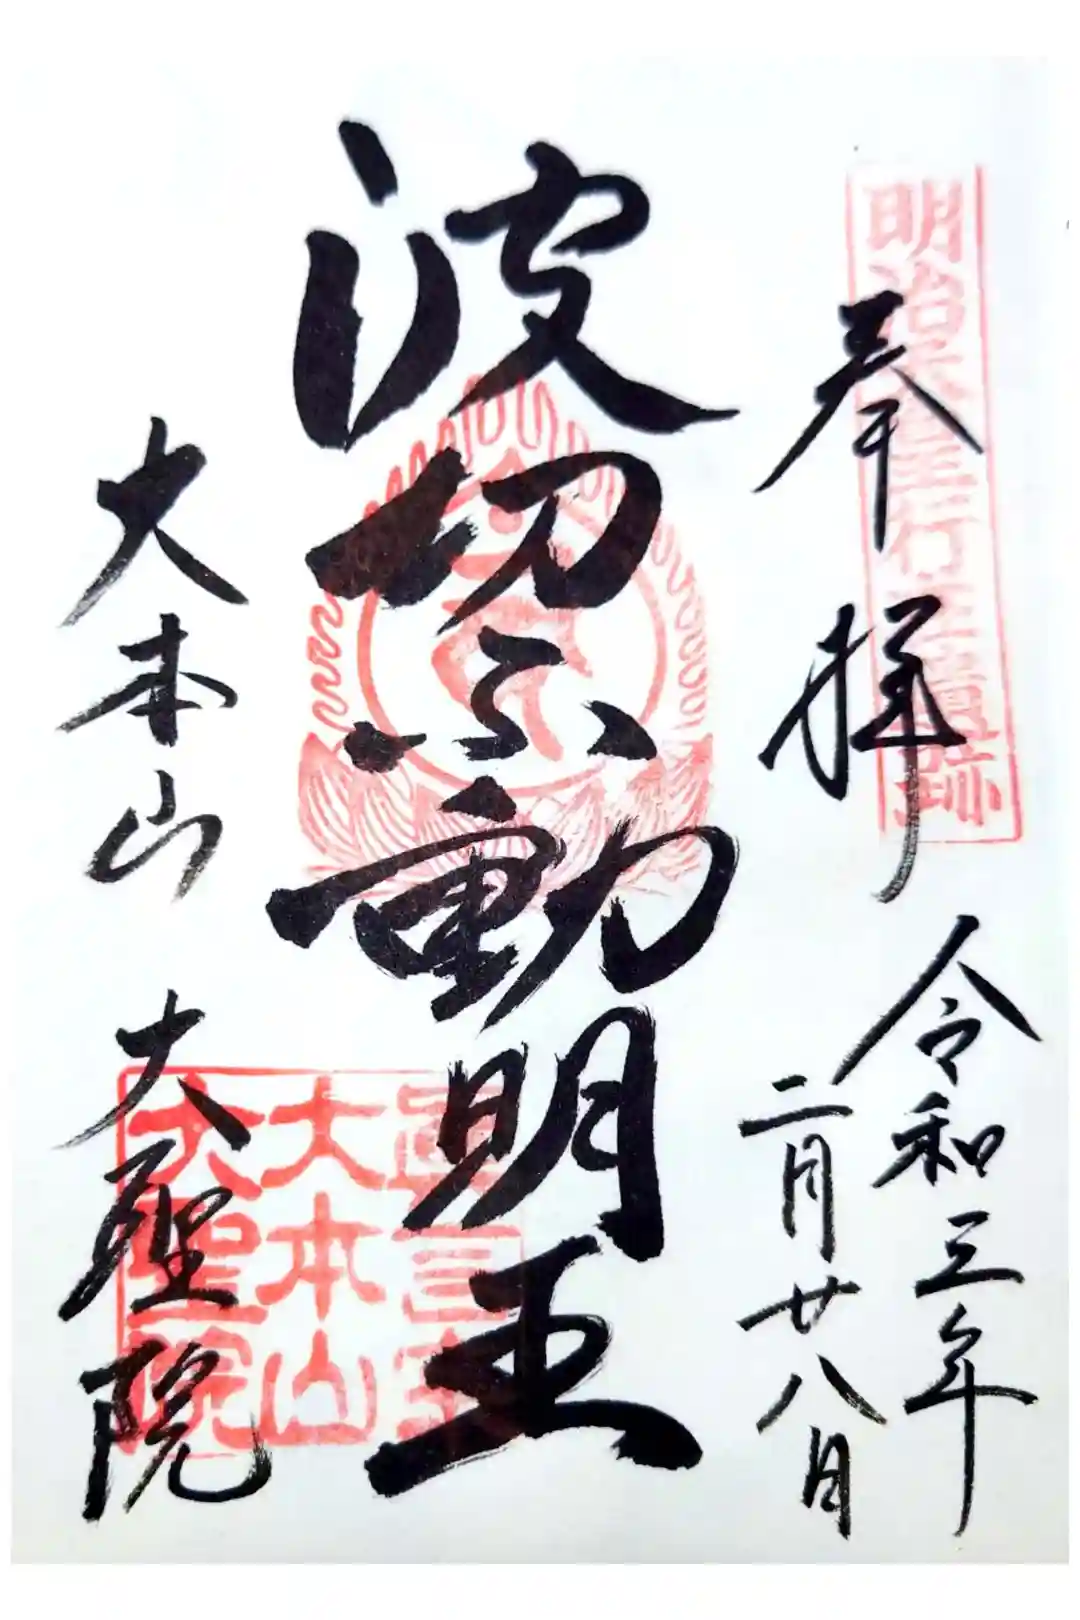 奉拝
明治天皇行在遺跡
令和三年
二月廿八日
波切不動明王
大本山 大聖院
真言宗
大本山
大聖院